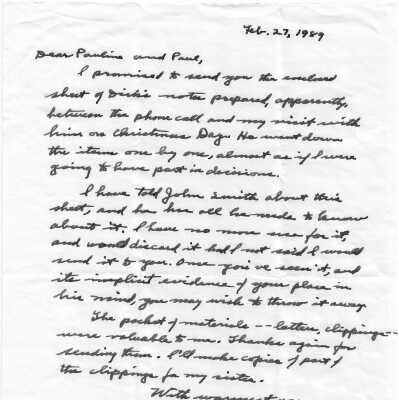 Feb. 27, 1989
Dear Pauline and Paul,
I promised to send you the enclosed
sheet of Dick's notes prepared, apparently,
between the phone call and my visit with
him on Christmas Day. He went down
the items one by one, almost as if I were
going to have part in decisions.
I have told John Smith about this
sheet, and he has all he needs to know
about it. I have no more use for it,
and would discard it had I not said I would
send it to you. Once you've seen it, and
its implicit evidence of your place in
his mind, you may wish to throw it away.
The packet of materials -- letters, clippings --
were valuable to me. Thanks again for
sending them. I'll make copies of part of
the clippings for my sister.
With warmest